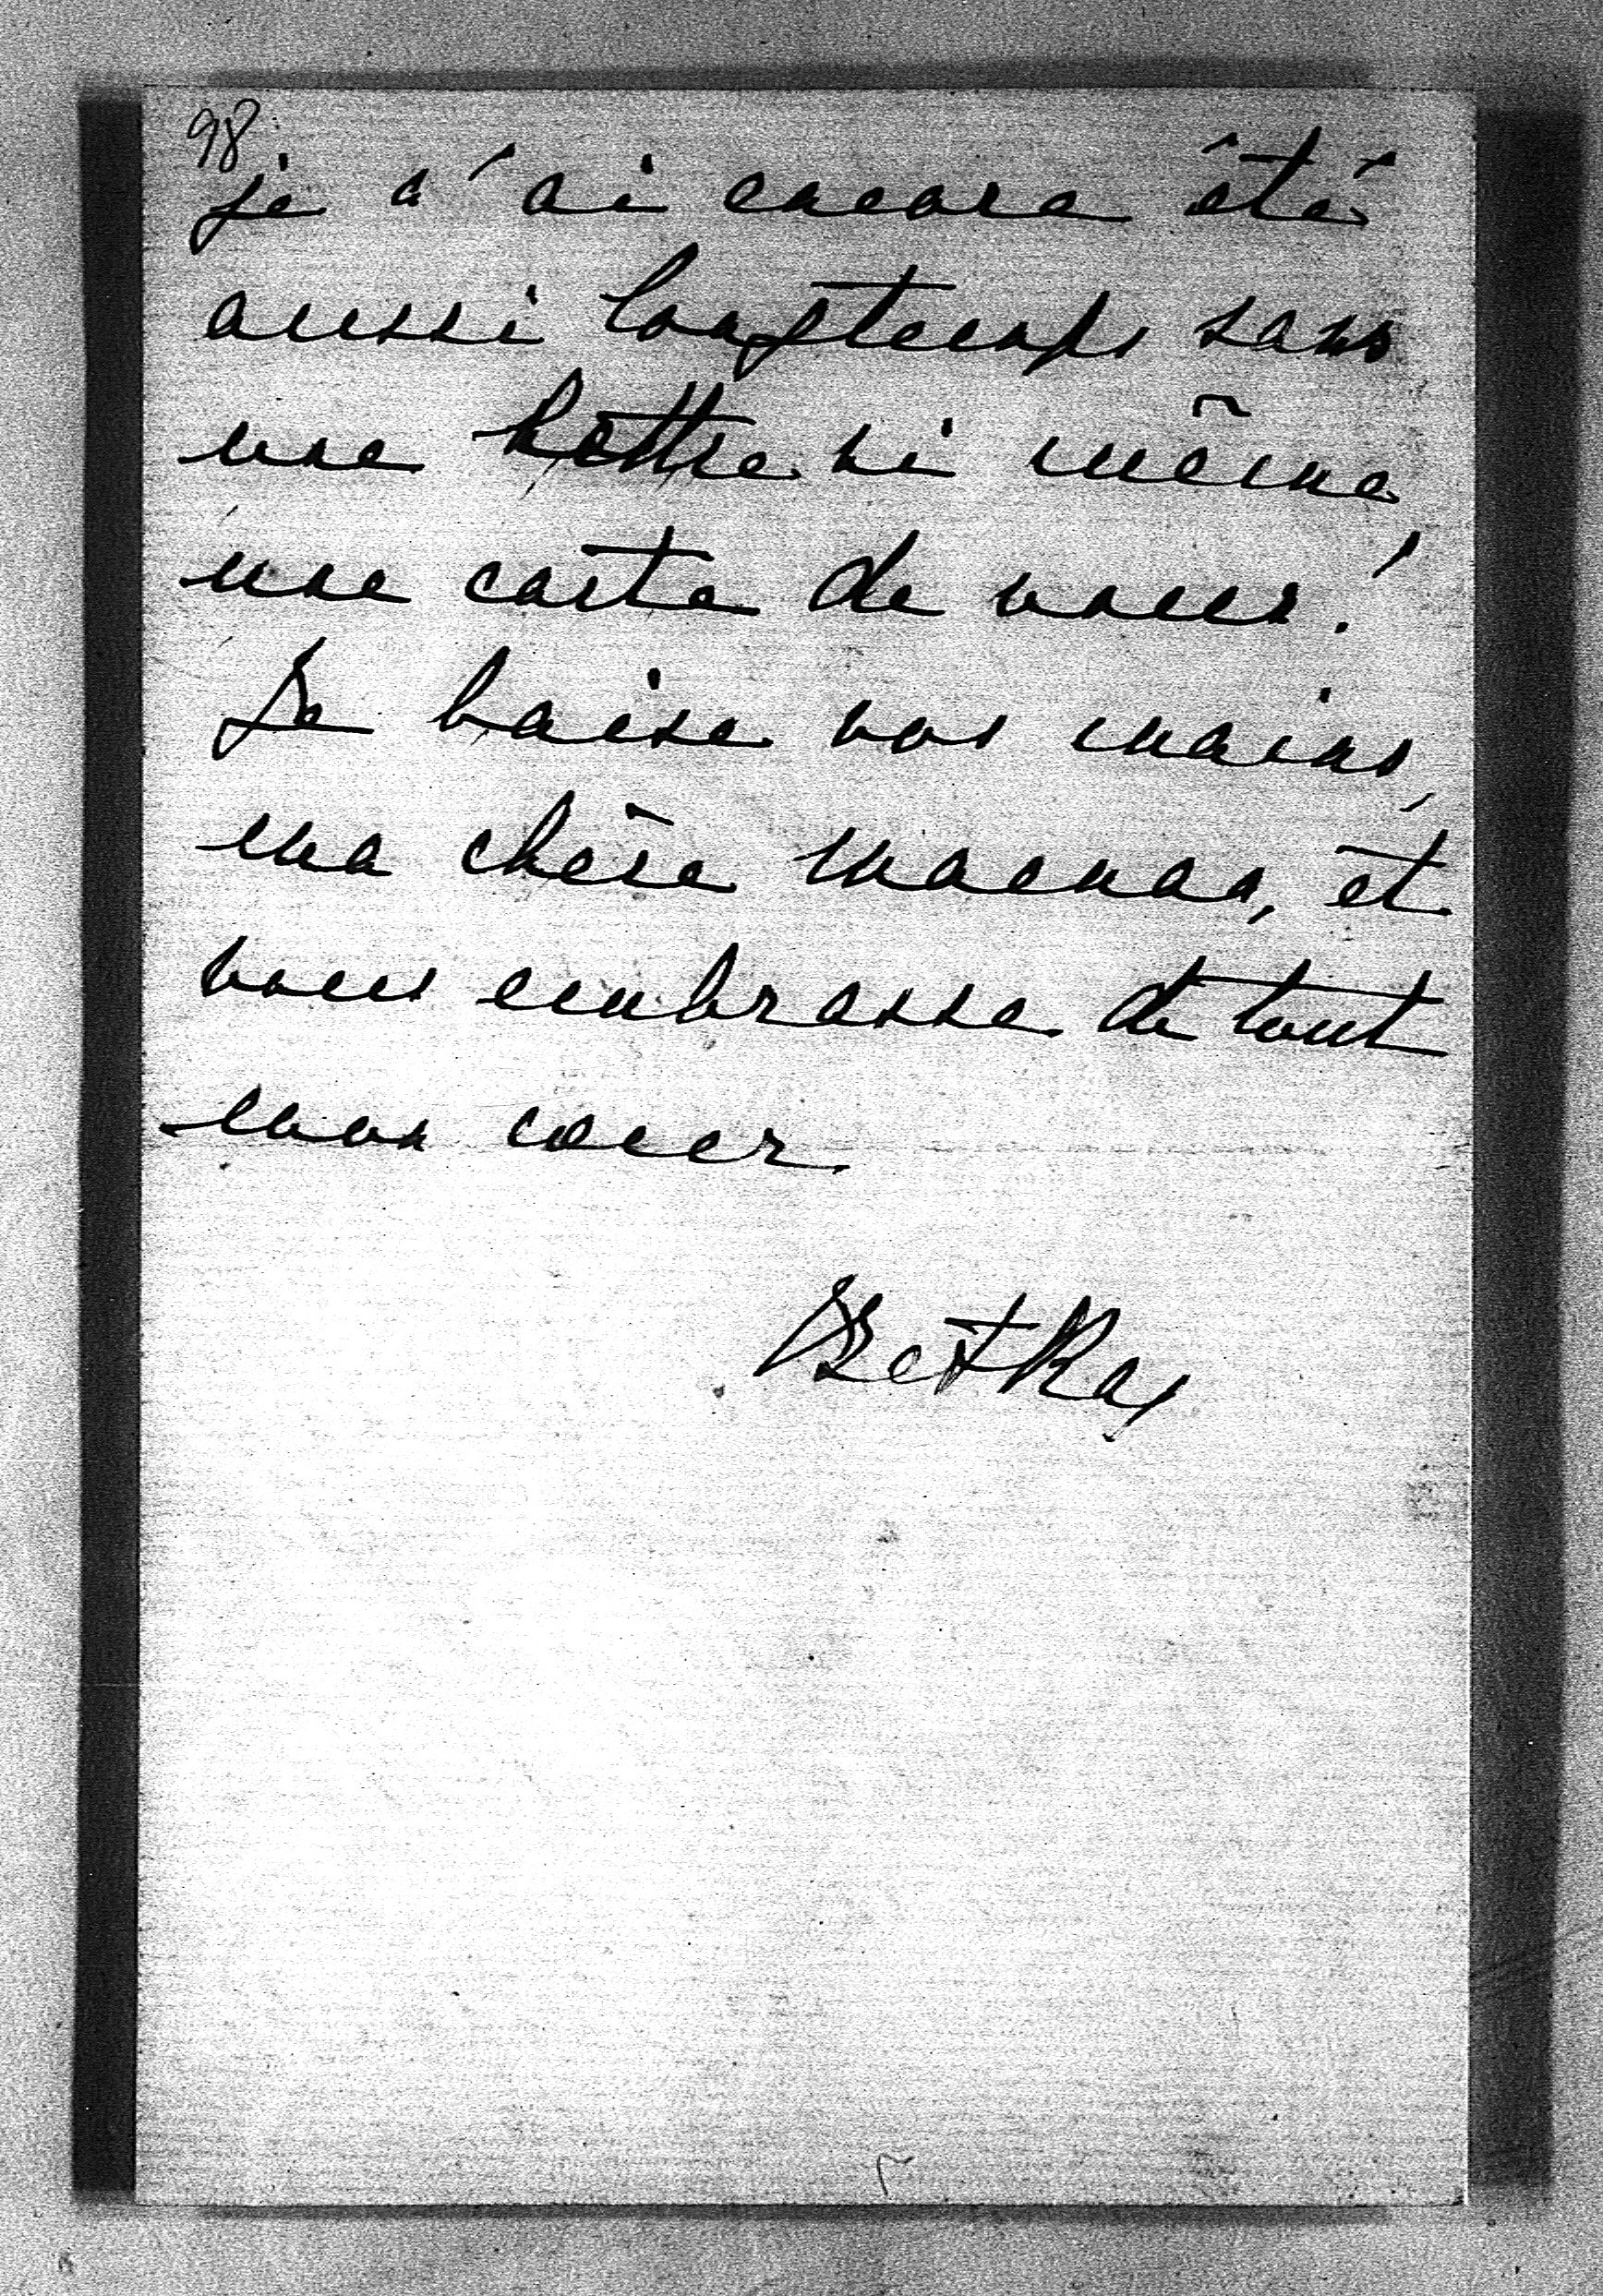 98
je n'ai encore été
aussi longtemps sans
une lettre ni même
une carte de vous!
Je baise vos mains,
ma chère maman, et
vous embrasse de tout
mon coeur.